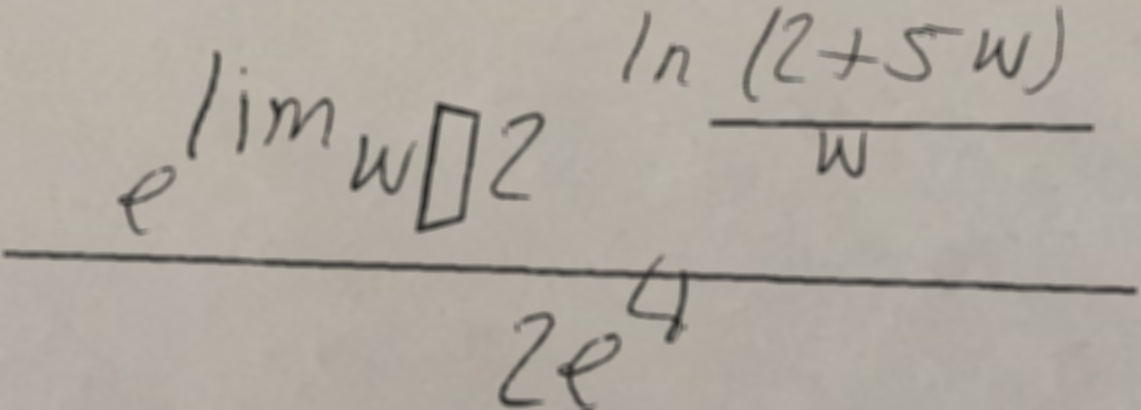 e^{lim_{w▯2} ln \frac{(2+5w)}{w}}
2e^4